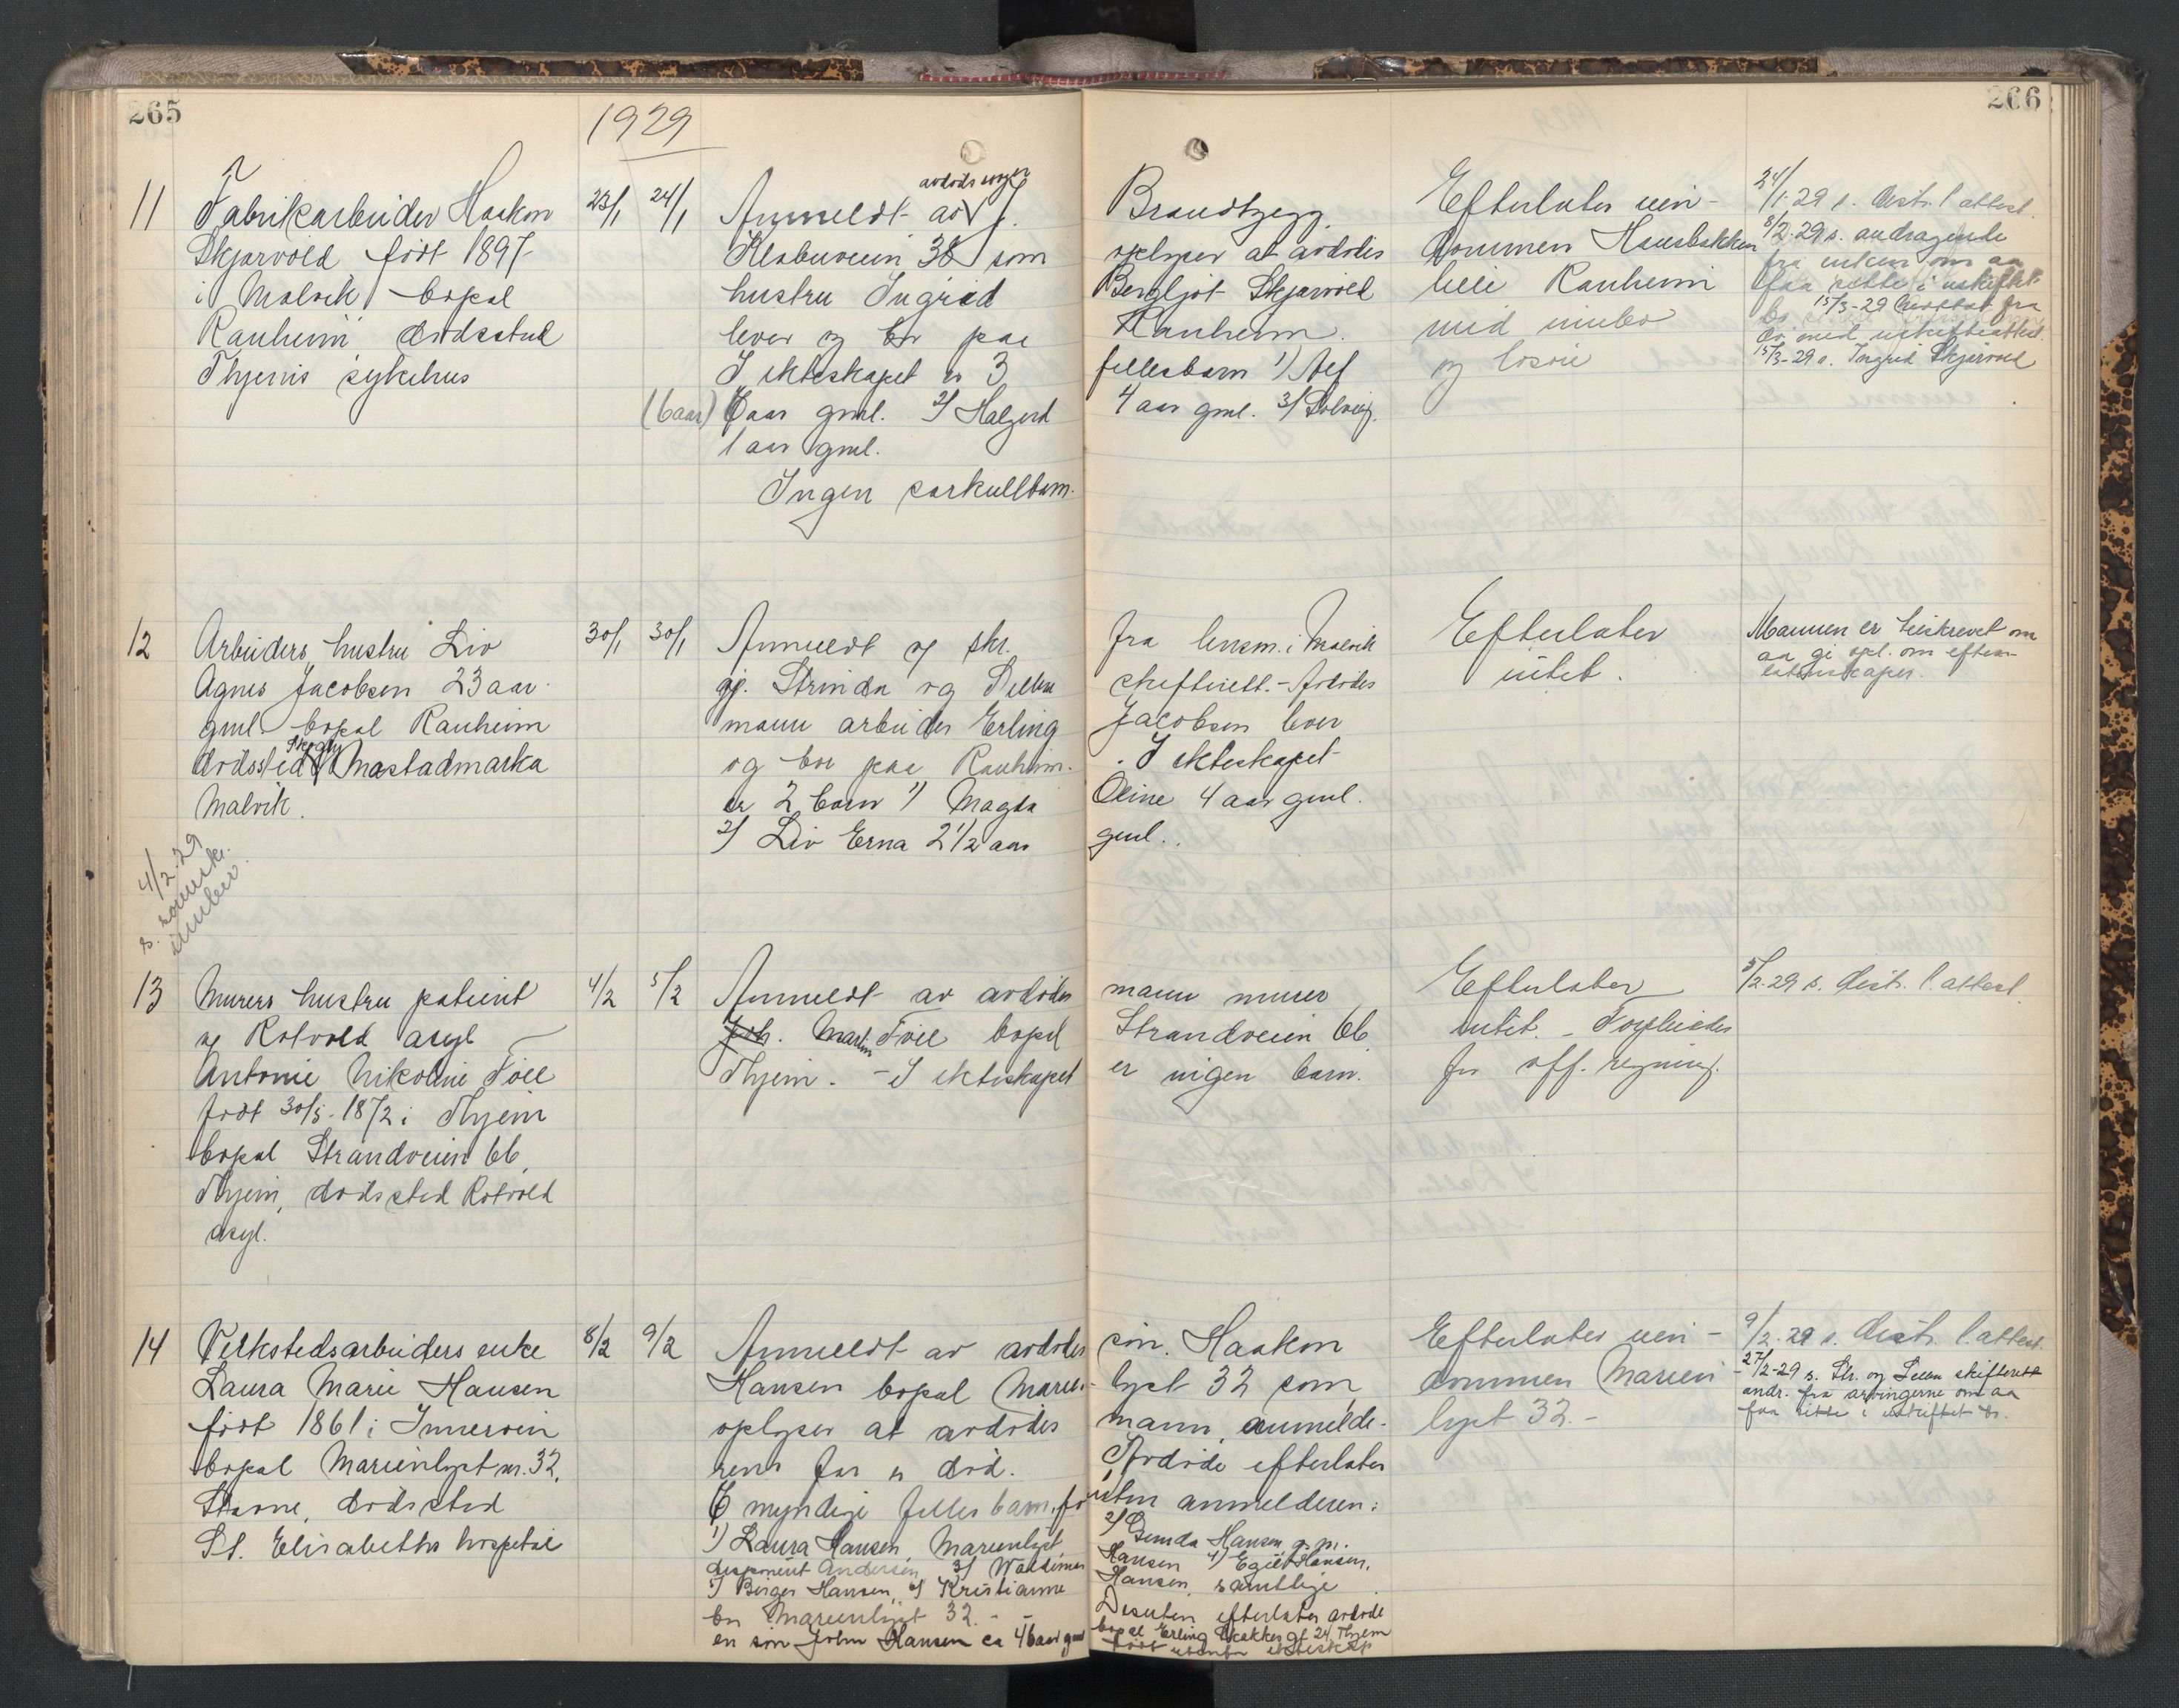 265
1929
266
11
Fabrikarbeider Haakon
Skjærvold, født 1897
i Malvik, bopæl
Ranheim dødssted
Thjems sykehus
23/1
24/1
avdødes svoger
Anmeldt av J. Brandtzægg
Klæbuveien 38 som oplyser at avdødes
hustru Ingrid Bergljot Skjærvold
lever og bor paa Ranheim.
I ekteskapet er 3 fellesbarn 1) Alf
(6 aar) 6 aar gml. 2) Halgerd 4 aar gml. 3) Solveig
1 aar gml.
Ingen særkullbarn.
Efterlater eien-
dommen Hansbakken
lille Ranheim
med innbo
og løsøre
24/1-29 s. distr. l. attest.
8/2-29 s. andragende
fra enken om aa
faa sitte i uskiftet
bo 15/3-29
15/3-29 s. Ingrid Skjærvold
12
Arbeiders hustru Liv
Agnes Jacobsen 23 aar
gml. bopæl Ranheim
dødssted Mostadmarka
Malvik.
30/1
30/1
Anmeldt og skr. fra lensm. i Malvik
gj. Strinda og Selbu skifterett. - Avdødes
mann arbeider Erling Jacobsen lever
og bor paa Ranheim. I ekteskapet
er 2 barn 1) Magda Oline 4 aar gml.
2) Liv Erna 2 1/2 aar gml.
Efterlater
intet.
Mannen er tilskrevet om
aa gi opl. om efter-
latenskaper.
4/2-29
13
Murers hustru patient
ve Rotvold asyl
Antonie Nikoline Foll
født 30/5-1872 i Thjem
bopæl Strandveien 66,
Thjem, dødssted Rotvold
asyl.
4/2
5/2
Anmeldt av avdødes mann murer
Joh. Martin Foll bopæl Strandveien 66
Thjem. - I ekteskapet er ingen barn.
Efterlater
intet. - Forpleiedes
for off. regning.
5/2-29 s. distr. l. attest.
14
Verkstedsarbeiders enke
Laura Marie Hansen
født 1861 i Inderøen
bopæl Marienlyst nr. 32,
Stavne, dødssted
St. Elisabeths hospital
8/2
9/2
Anmeldt av avdødes søn Haakon
Hansen bopæl Marien- lyst 32 som
oplyser at avdødes mann, anmelde-
rens far er død. Avdøde efterlater
6 myndige fellesbarn, foruten anmelderen:
1) Laura Hansen, Marienlyst, 2) Gerda Hansen g. m.
disponent Andersen, 3) Waldemar Hansen 4) Egil Hansen,
5) Birger Hansen, 6) Kristianne Hansen, samtlige
bor Marienlyst 32. - Desuten efterlater avdøde
en søn John Hansen ca 46 aar gml bopæl Erling Skakkes gt 24, Thjem
født utenfor ekteskap
Efterlater eien-
dommen Marien-
lyst 32. -
9/2-29 s. distr. l. attest.
27/2-29 s. Str. og Selbu skifterett
andr. fra arvingerne om aa
faa sitte i uskiftet bo.